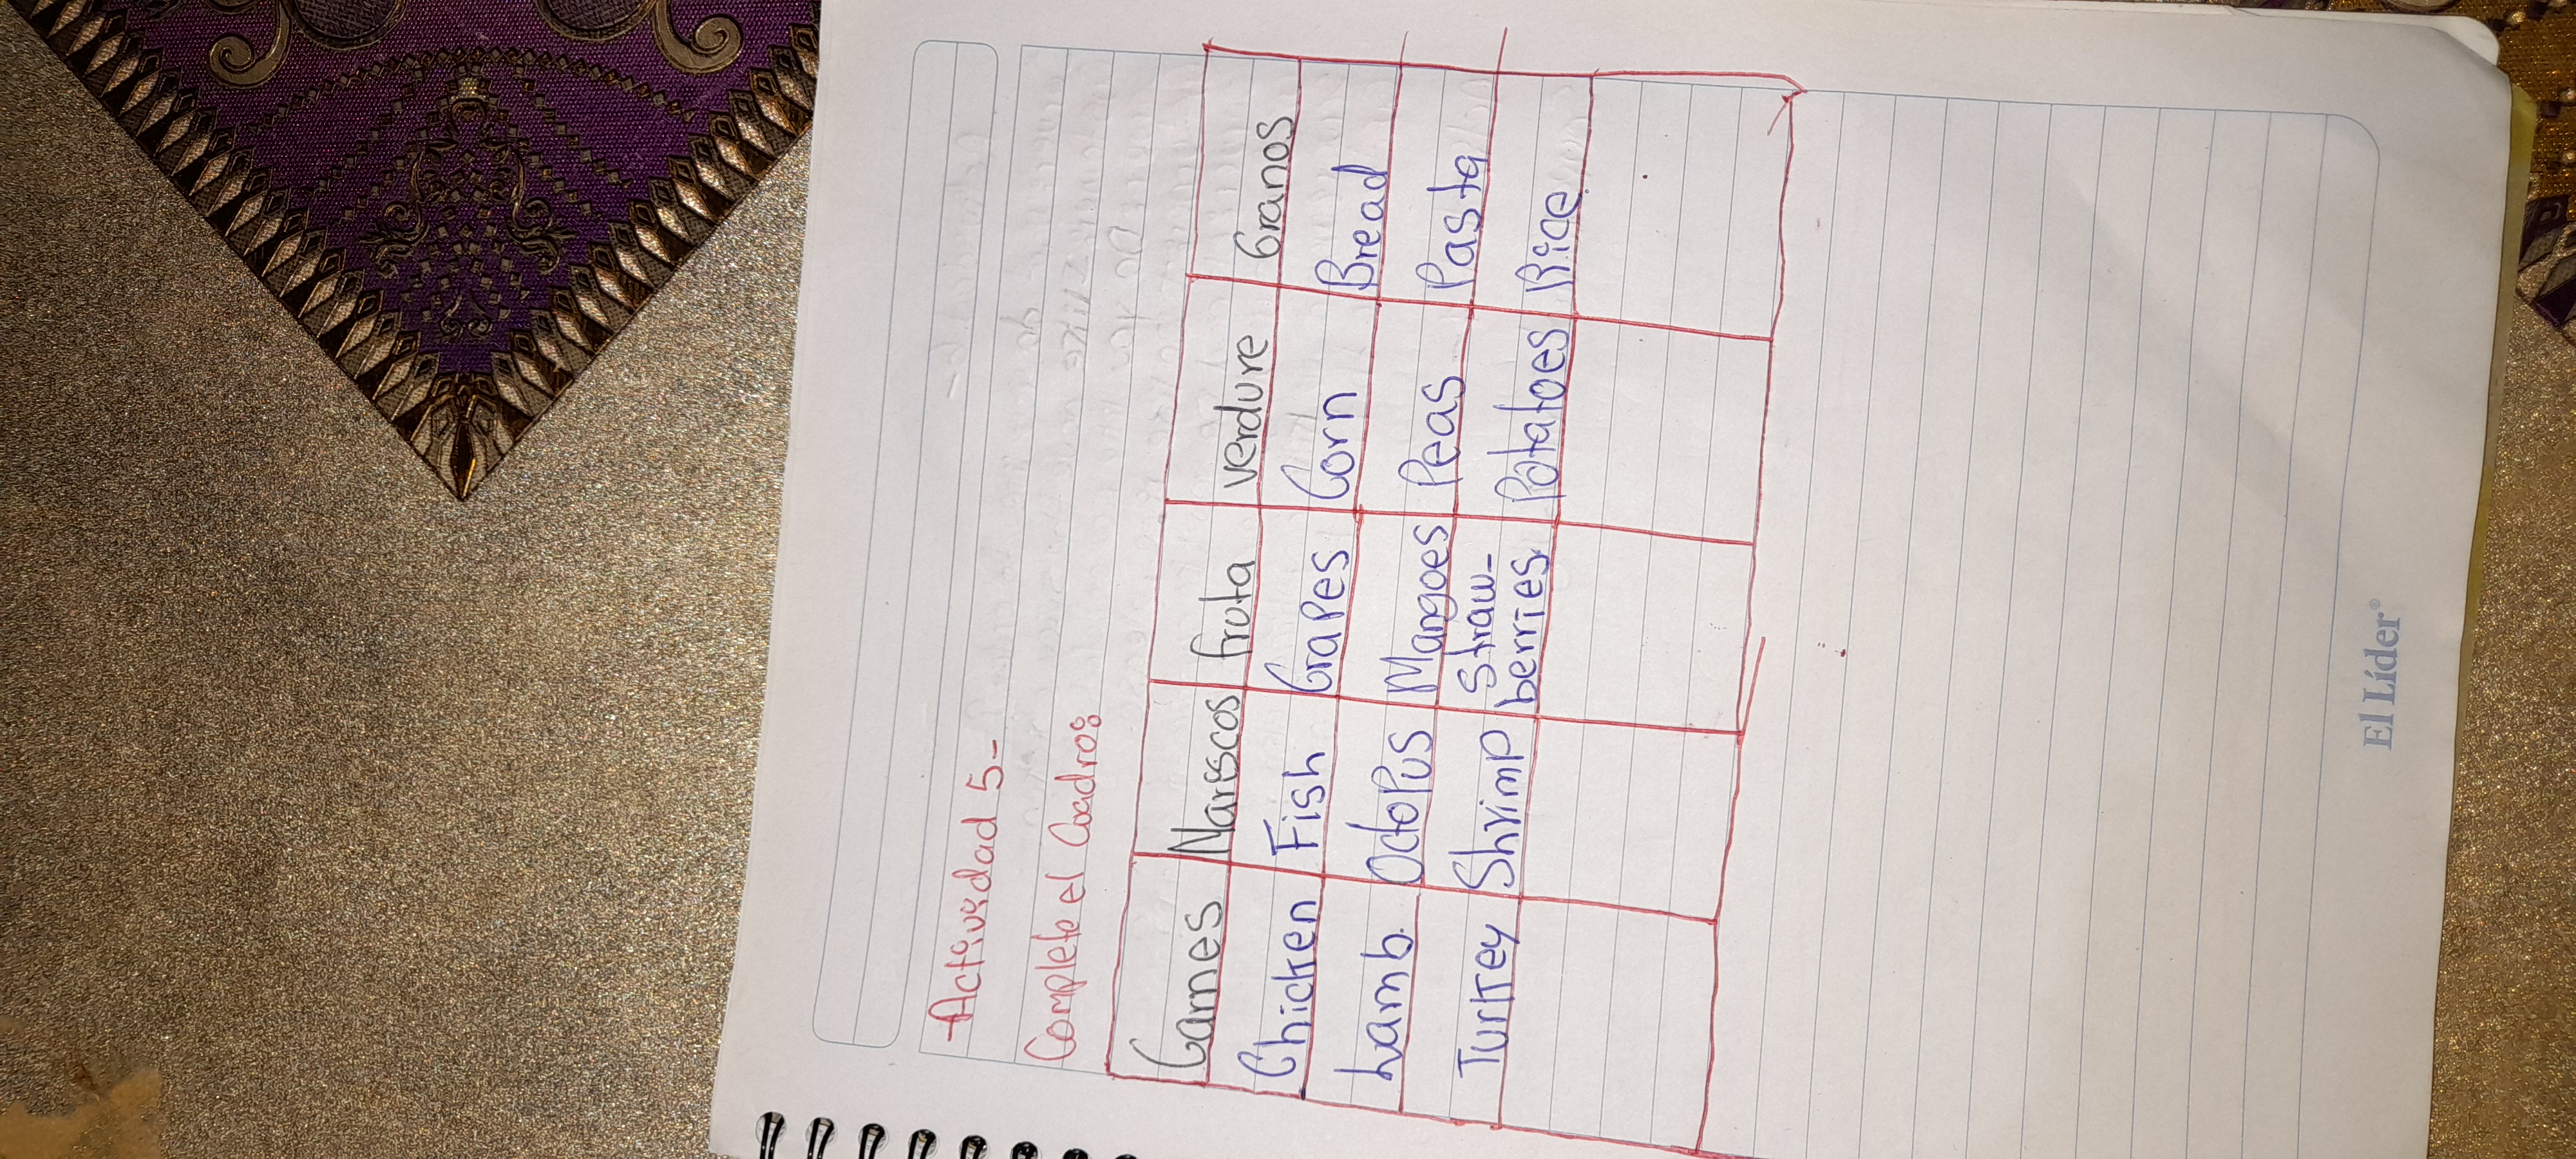 Actividad 5-
Complete el Cuadro:
Carnes Mariscos fruta verdure Granos
Chicken Fish Grapes Corn Bread
Lamb. Octopus Mangoes Peas Pasta
Turkey Shrimp Straw-berries Potatoes Rice
El Líder®